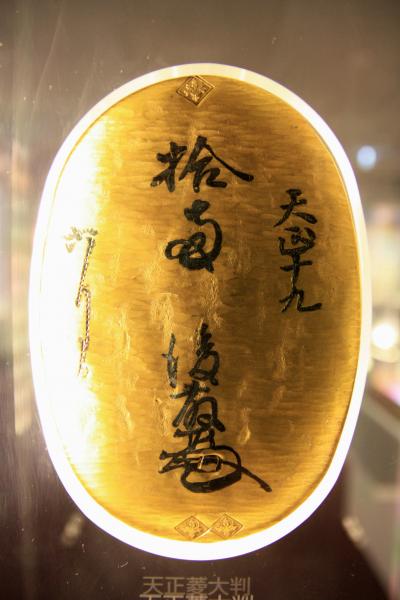 天正十九
拾両 後藤
天正菱大判